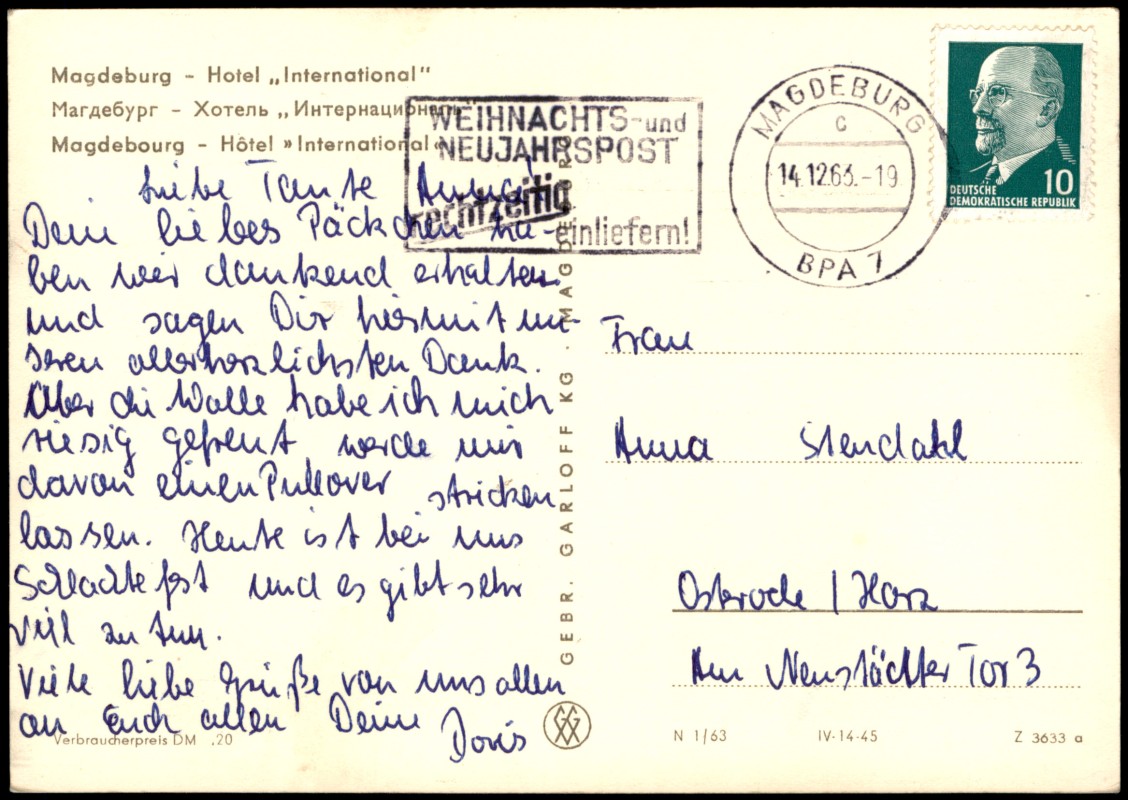 Magdeburg - Hotel „International"
Магдебург - Хотель „Интернационал"
Magdebourg - Hôtel »International«
WEIHNACHTS- und
NEUJAHRSPOST
rechtzeitig
einliefern!
MAGDEBURG
C
14.12.63.-19
BPA 7
DEUTSCHE
DEMOKRATISCHE REPUBLIK
10
Liebe Tante Anna!
Dein liebes Päckchen ha-
ben wir dankend erhalten
und sagen Dir hiermit un-
seren allerherzlichsten Dank.
Über die Wolle habe ich mich
riesig gefreut werde mir
davon einen Pullover stricken
lassen. Heute ist bei uns
Schlachtefest und es gibt sehr
viel zu tun.
Viele liebe Grüße von uns allen
an Euch allen Deine
Doris
GEBR. GARLOFF KG · MAGDEBURG
Frau
Anna Stendahl
Osterode / Harz
Am Neustädter Tor 3
Verbraucherpreis DM .20
N 1/63
IV-14-45
Z 3633 a